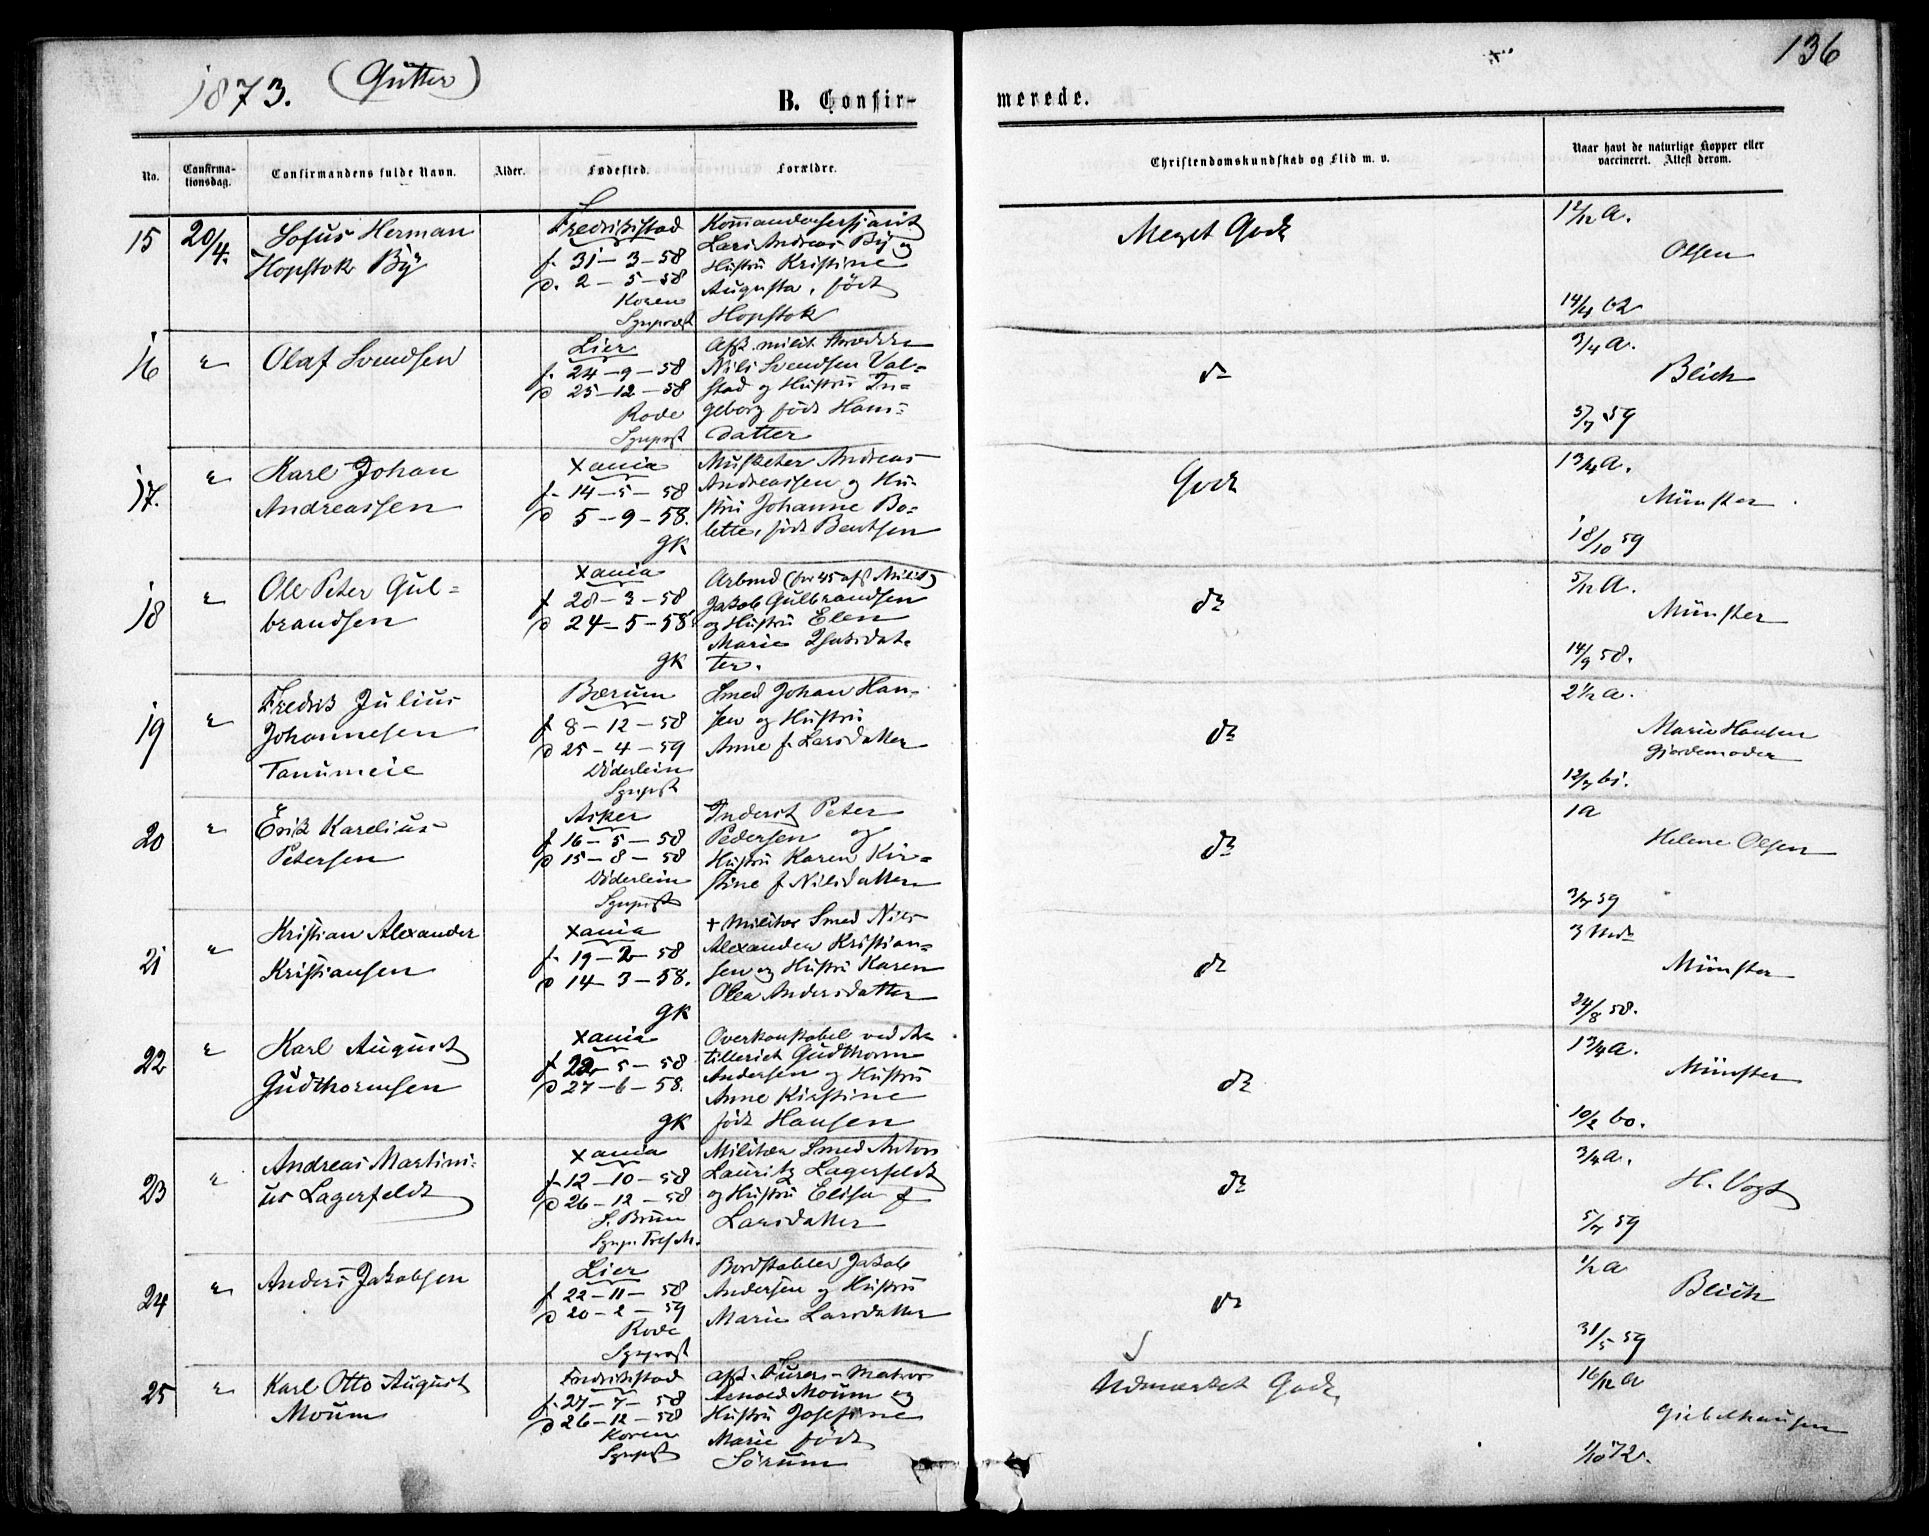 1873. (Gutter)
136
B. Confir-
merede.
No.
Confirma-
tionsdag.
Confirmandens fulde Navn.
Alder.
Fødested.
Forældre.
Christendomskundskab og Flid m. v.
Naar havt de naturlige Kopper eller
vaccineret. Attest derom.
15
20/4.
Sofus Herman
Hopstok By
Fredriksstad
f. 31-3-58
d. 2-5-58
Koren
Sgnpræst
Lars Andreas By og
Hustru Kristine
Augusta, født
Hopstok
Meget Godt
Olsen
14/4 62
16
"
Olaf Svendsen
Lier
f. 24-9-58
d 25-12-58
Rode
Sgnprst
Afsk. milit.
Nils Svendsen Val-
stad og Hustru In-
geborg født Hans-
datter
do
3/4 A.
Blich
5/7 59
17.
"
Karl Johan
Andreassen
Xania
f. 14-5-58
d 5-9-58.
GK
Musketer Andreas
Andreassen og Hu-
stru Johanne Bo-
lette, født Bentsen
Godt
1 3/4 A.
Münster
18/10 59
18
"
Ole Peter Gul-
brandsen
Xania
f 28-3-58
d 24-5-58
GK
Jakob Gulbrandsen
og Hustru Elen
Marie
ter.
do
Münster
14/9 58.
19
"
Fredrik Julius
Johannesen
Tanumeie
Bærum
f 8-12-58
d 25-4-59
Döderlein
Sgnprst
Smed Johan Han-
sen og Hustru
Anne f. Larsdatter
do
2 1/2 A.
Marie Hansen
Gjordemoder
12/7 61.
20
"
Erik Karelius
Petersen
Asker
f 16-5-58
d 15-8-58
Döderlein
Sgnprst
Inderst Peter
Pedersen og
Hustru Karen Kir-
stine f Nilsdatter
do
1 A
Helene Olsen
3/7 59
21
"
Kristian Alexander
Kristiansen
Xania
f. 19-2-58
d 14-3-58.
GK
+ Militær Smed Nils
Alexander Kristian-
sen og Hustru Karen
Olea Andersdatter
do
3 Md
Münster
24/8 58.
22
"
Karl August
Gudthormsen
Xania
f 22-5-58
d 27-6-58.
GK
Overkonstabel ved Ar
tilleriet Gudthorm
Andersen og Hustru
Anne Kirstine
født Hansen
do
1 3/4 A.
Münster
10/2 60.
23
"
Andreas Martini-
us Lagerfeldt
Xania
f 12-10-58
d 26-12-58
S. Bruun
Militær Smed Anton
Lauritz Lagerfeldt
og Hustru Elise f
Larsdatter
do
3/4 A.
H. Vogt
5/7 59
24
"
Anders Jakobsen
Lier
f 22-11-58
d 20-2-59
Rode
Sgnprst
Bordstabler Jakob
Andersen og Hustru
Marie Larsdatter
do
1/2 A
Blich
31/5 59
25
"
Karl Otto August
Moum
Fredriksstad
f. 27-7-58
d 26-12-58
Koren
Sgnprst
Arnold Moum og
Hustru Josefine
Marie født
Sørum
Udmærket Godt
Giebelhausen
1/10 72.